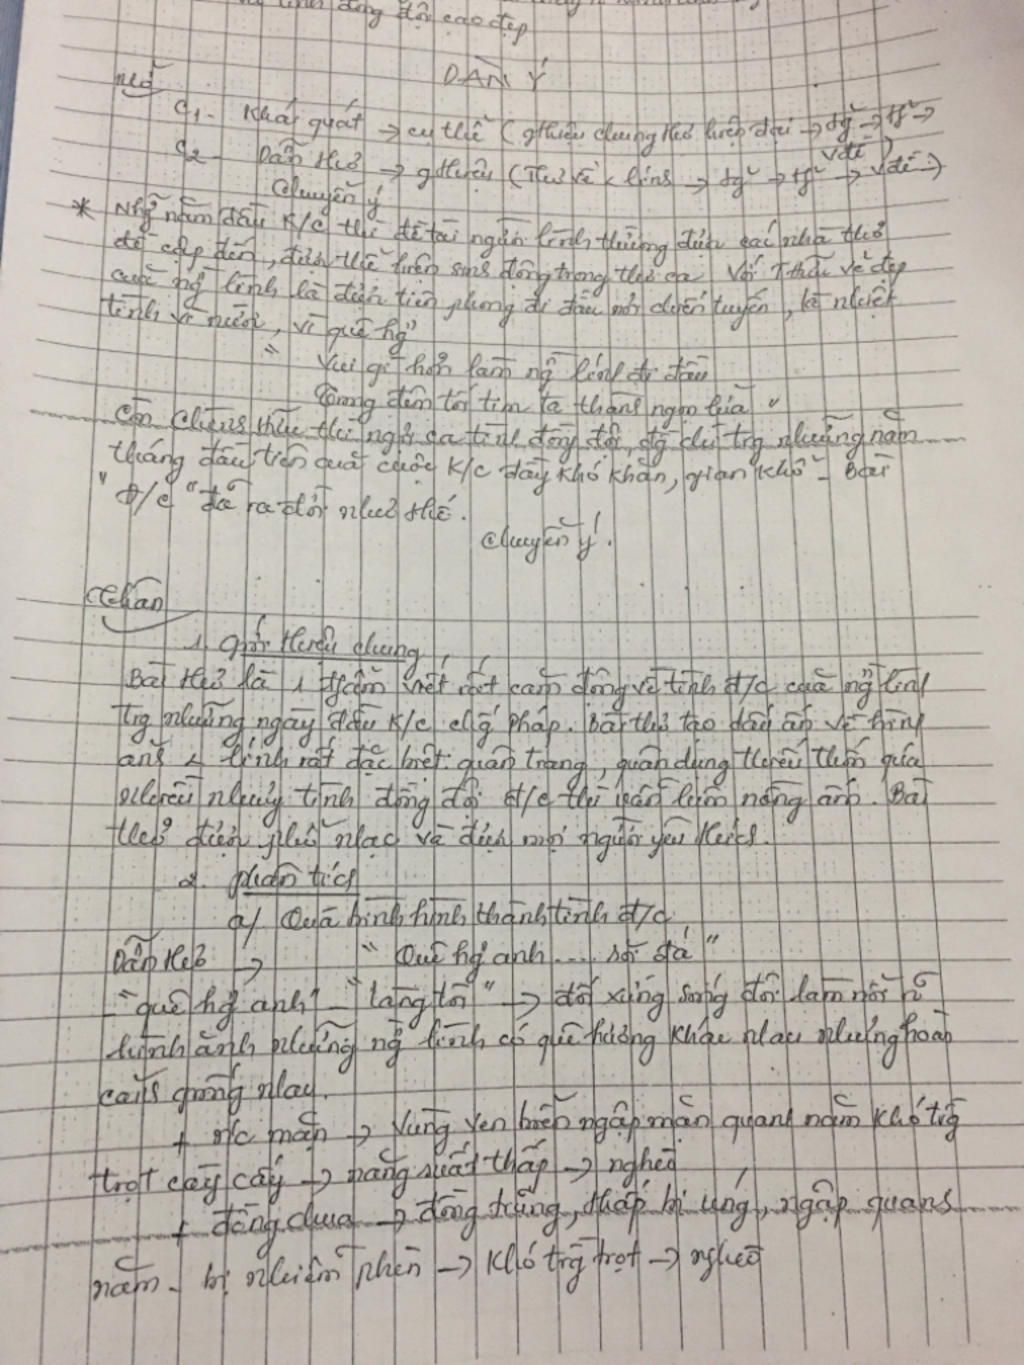 tình đồng đội cao đẹp
DÀN Ý
Mở
C1- Khái quát → cụ thể (gthiệu chung thơ hiện đại → tg → tp →
vđề)
C2- Dẫn thơ → gthiệu (Thơ về lính → tg → tp → vđề)
Chuyển ý
* Nhg năm đầu K/c thì đề tài người lính thường được các nhà thơ
đề cập đến, được thể hiện sinh động trong thơ ca. Với T.Hữu vẻ đẹp
của ng lính là được tiên phong đi đầu nơi chiến tuyến, là nhiệt
tình vì nước, vì quê hg
" Vui gì hơn làm ng lính đi đầu
Trong đêm tối tim ta thành ngọn lửa "
Còn Chính Hữu thì ngợi ca tình đồng đội, đ/c trg những năm
tháng đầu tiên của cuộc K/c đầy khó khăn, gian khổ - Bài
" Đ/c " đã ra đời như thế.
Chuyển ý.
Thân
1. Giới thiệu chung
Bài thơ là 1 t/phẩm viết rất cảm động về tình đ/c của ng lính
trg những ngày đầu K/c chg Pháp. Bài thơ tạo dấu ấn về hình
ảnh lính rất đặc biệt: quân trang, quân dụng thiếu thốn
nhiều nhưng tình đồng đội đ/c thì vẫn luôn nồng ấm. Bài
thơ được phổ nhạc và được mọi người yêu thích.
2. Phân tích
a/ Quá trình hình thành tình đ/c
Dẫn thơ → " Quê hg anh .... sỏi đá "
- "quê hg anh" - "làng tôi" → đối xứng song đôi làm nổi rõ
hình ảnh những ng lính có quê hương khác nhau nhưng hoàn
cảnh giống nhau.
+ n/c mặn → Vùng ven biển ngập mặn quanh năm khó trg
trọt cày cấy → năng suất thấp → nghèo
+ đồng chua → đồng trũng, thấp bị úng, ngập quanh
năm - bị nhiễm phèn → khó trg trọt → nghèo